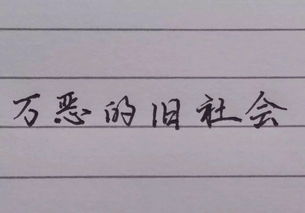 万恶的旧社会